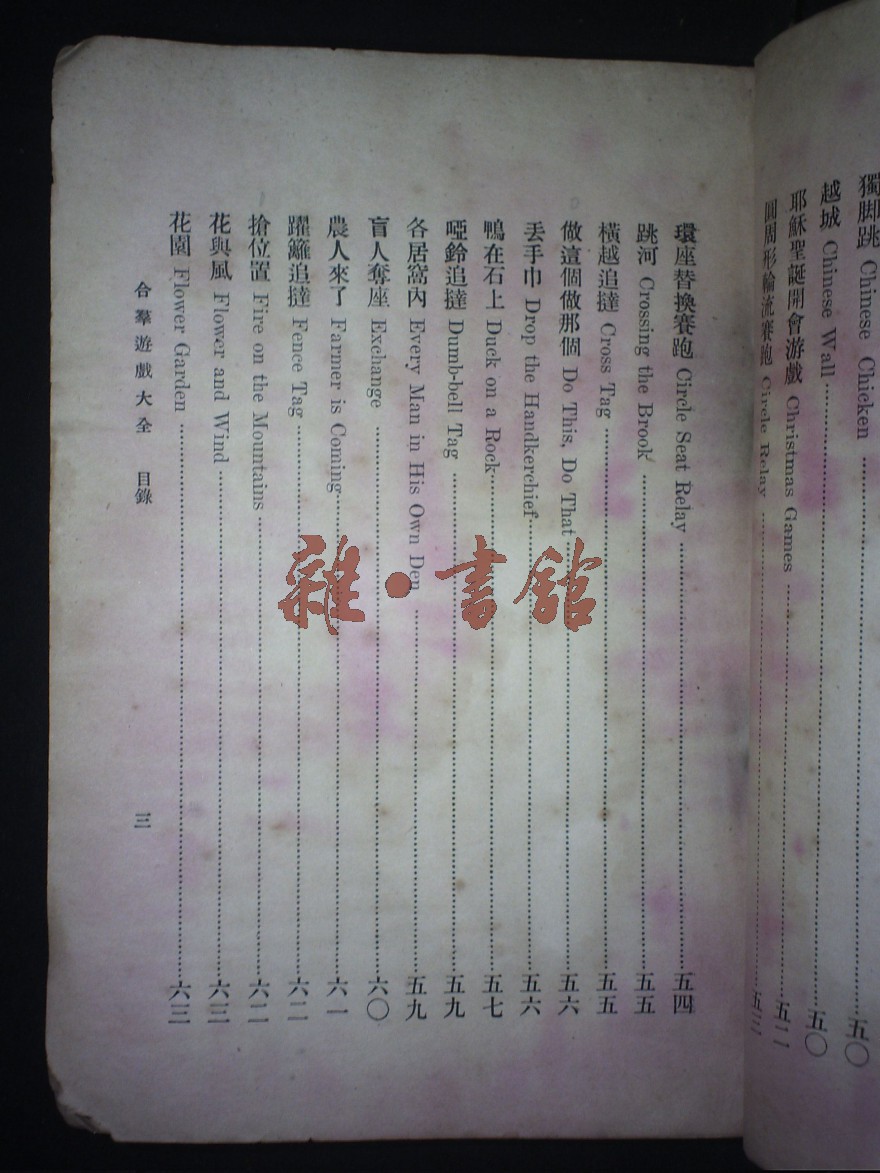 獨脚跳 Chinese Chicken 五〇
越城 Chinese Wall 五〇
耶穌聖誕開會游戲 Christmas Games 五二
圓周形輪流賽跑 Circle Relay 五三
環座替換賽跑 Circle Seat Relay 五四
跳河 Crossing the Brook 五五
橫越追撻 Cross Tag 五五
做這個做那個 Do This, Do That 五六
丟手巾 Drop the Handkerchief 五六
鴨在石上 Duck on a Rock 五七
啞鈴追撻 Dumb-bell Tag 五九
各居窩內 Every Man in His Own Den 五九
盲人奪座 Exchange 六〇
農人來了 Farmer is Coming 六一
躍籬追撻 Fence Tag 六二
搶位置 Fire on the Mountains 六二
花與風 Flower and Wind 六三
花園 Flower Garden 六三
合羣遊戲大全 目錄 三
雜·書館